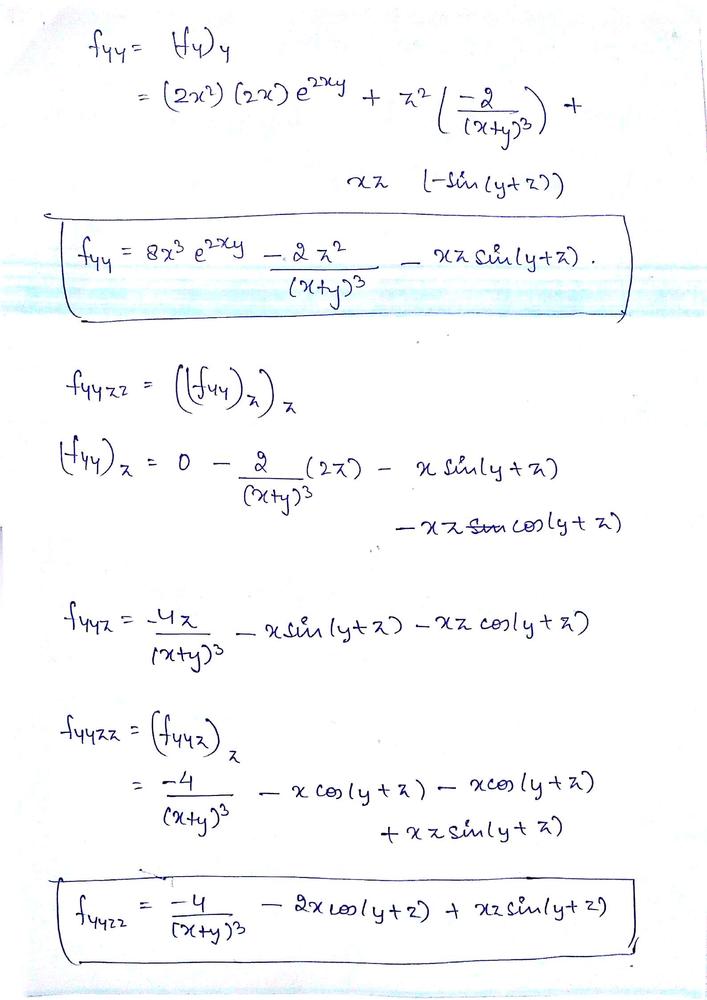 fyy = (fy)y
= (2x²) (2x) e^2xy + z² (-2/(x+y)³) +
xz (-sin(y+z))
fyy = 8x³ e^2xy - 2z²/(x+y)³ - xz sin(y+z).
fyyzz = ((fyy)z)z
(fyy)z = 0 - 2/(x+y)³ (2z) - x sin(y+z)
- xz cos(y+z)
fyyz = -4z/(x+y)³ - x sin(y+z) - xz cos(y+z)
fyyzz = (fyyz)z
= -4/(x+y)³ - x cos(y+z) - x cos(y+z)
+ xz sin(y+z)
fyyzz = -4/(x+y)³ - 2x cos(y+z) + xz sin(y+z)